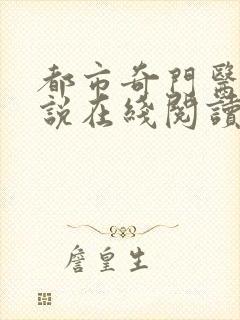 都市奇門醫
說在綫閱讀
詹皇生